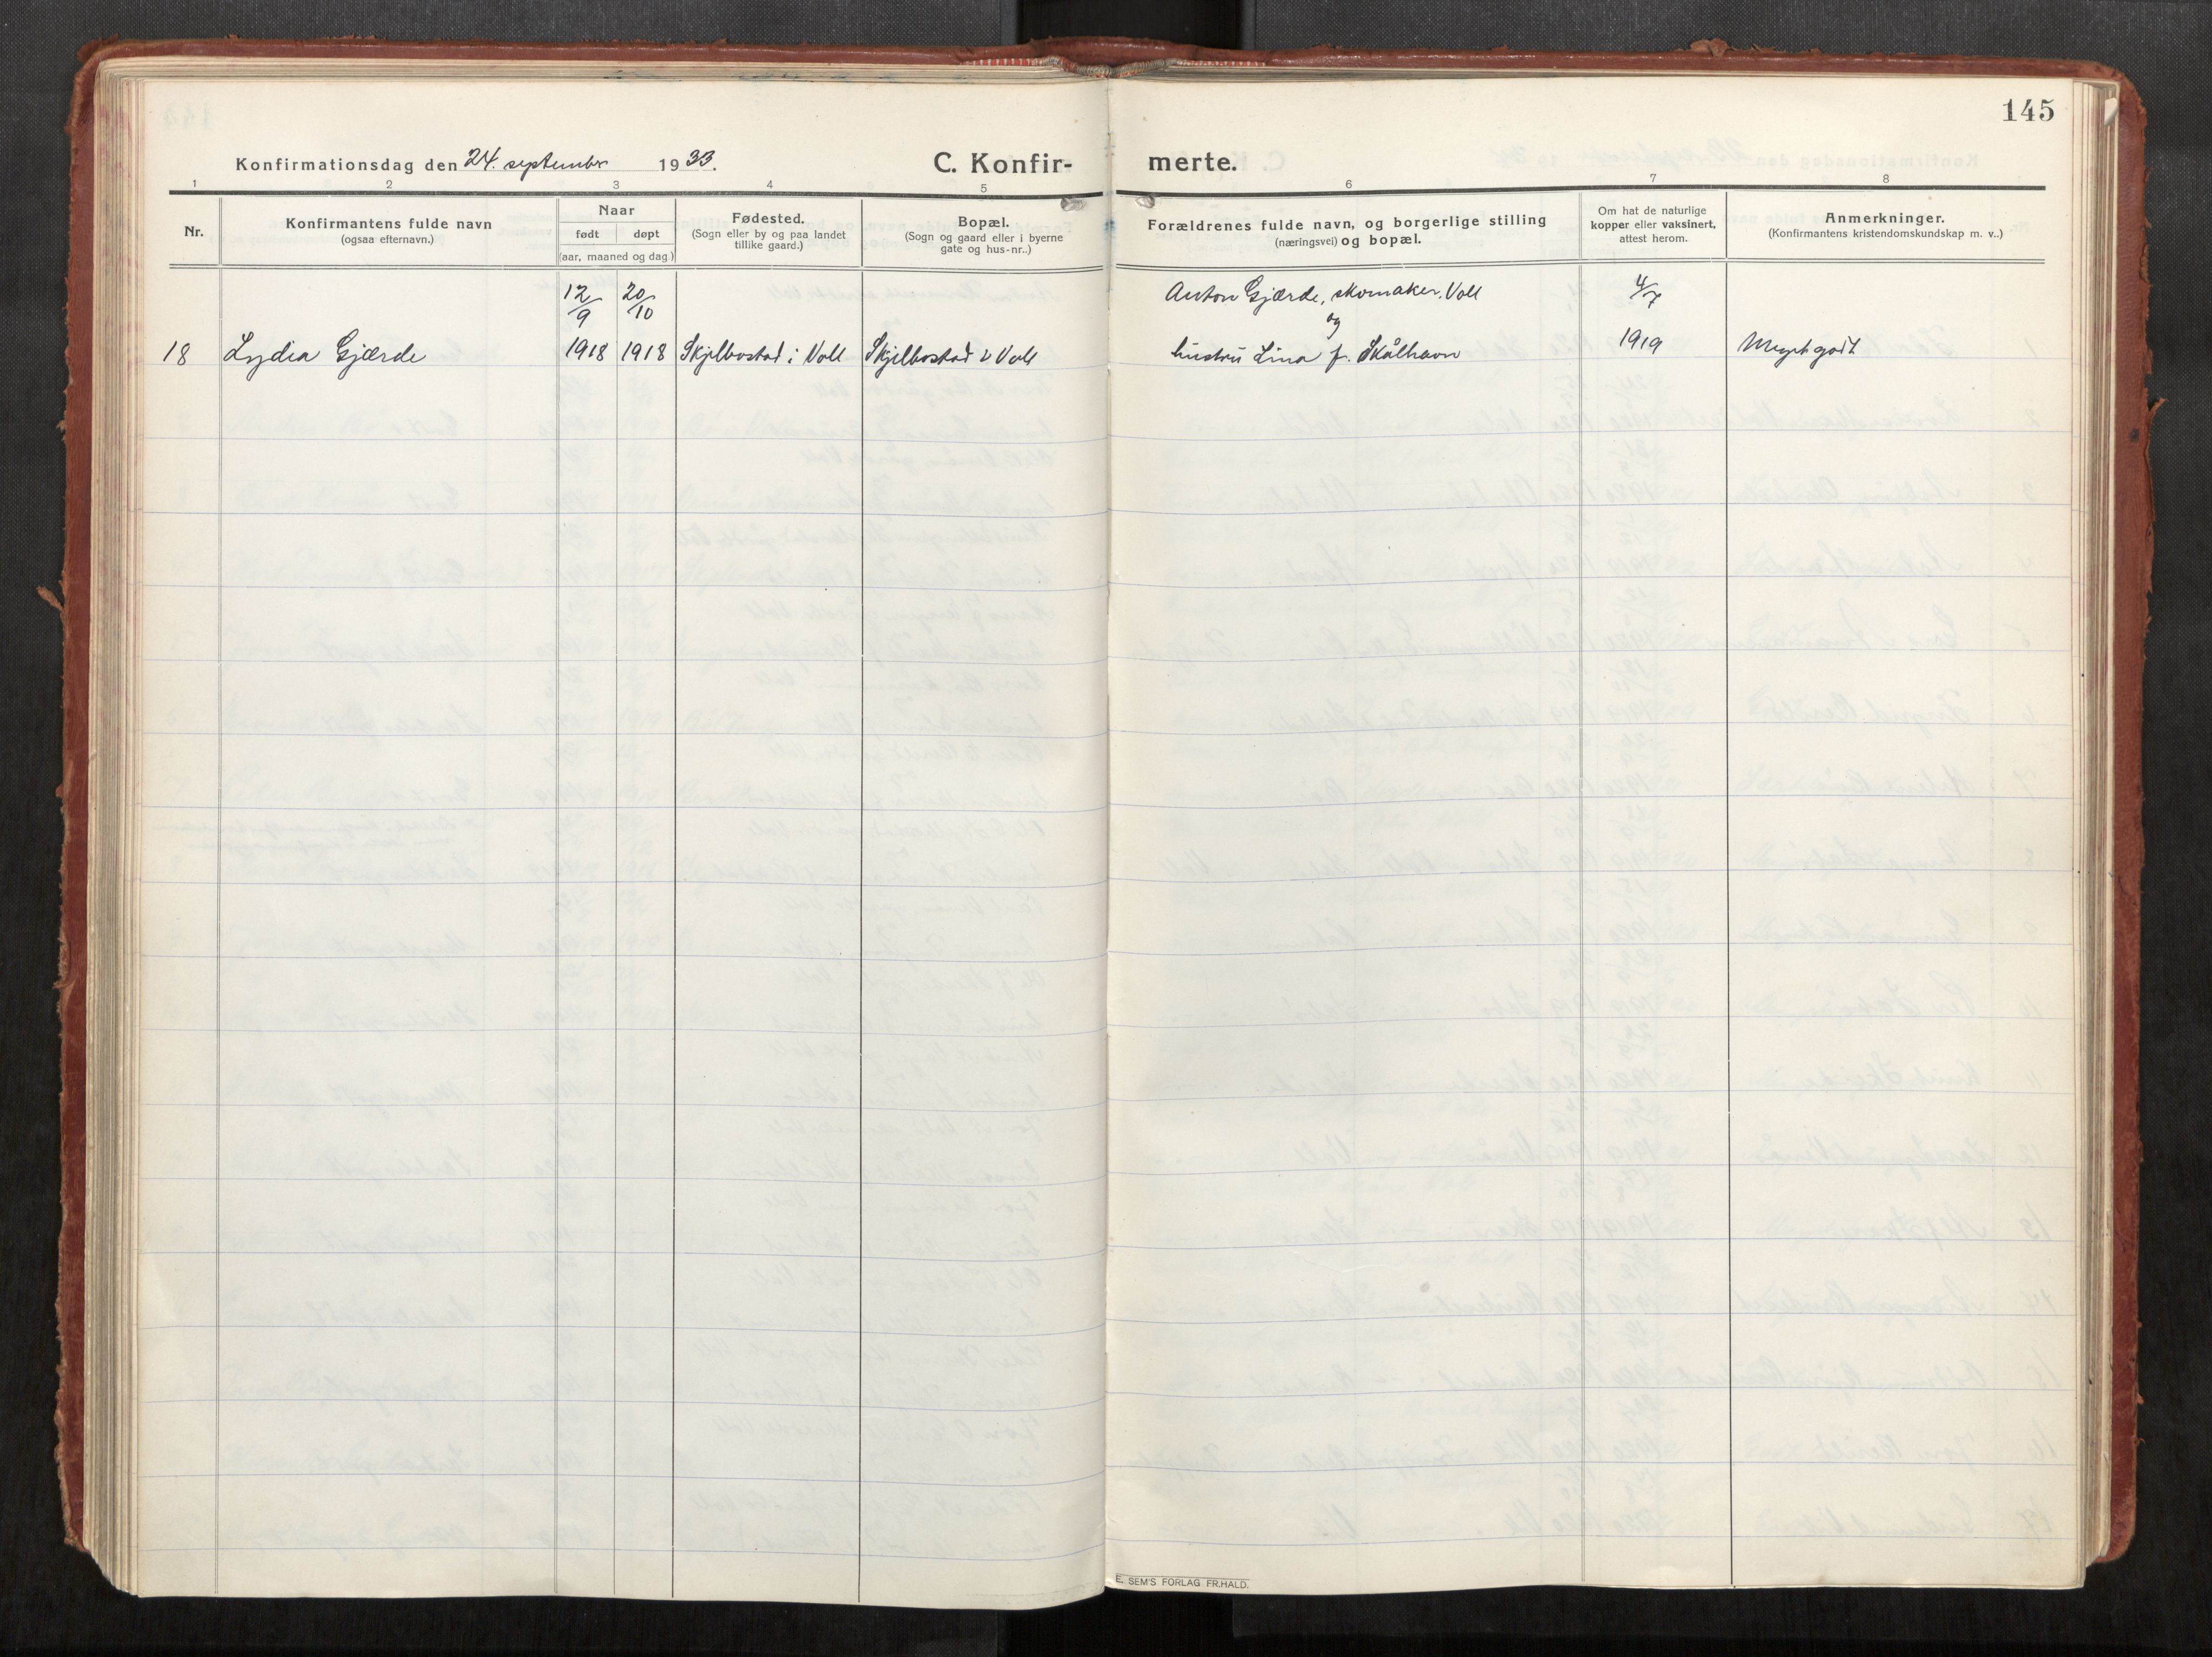 145
Konfirmationsdag den 24. september 1933.
C. Konfir-
merte.
1 2 3 4 5 6 7 8
Nr.
Konfirmantens fulde navn
(ogsaa efternavn.)
Naar
født
døpt
(aar, maaned og dag.)
Fødested.
(Sogn eller by og paa landet
tillike gaard.)
Bopæl.
(Sogn og gaard eller i byerne
gate og hus-nr..)
Forældrenes fulde navn, og borgerlige stilling
(næringsvei) og bopæl.
Om hat de naturlige
kopper eller vaksinert,
attest herom.
Anmerkninger.
(Konfirmantens kristendomskundskap m. v..)
12/9 20/10 Anton Gjærde, skomaker, Voll 4/7
og
18 Lydia Gjærde 1918 1918 Skjelbostad i Voll Skjelbostad i Voll hustru Lina f. Skålhavn 1919 Meget godt
E. SEM'S FORLAG FR.HALD.